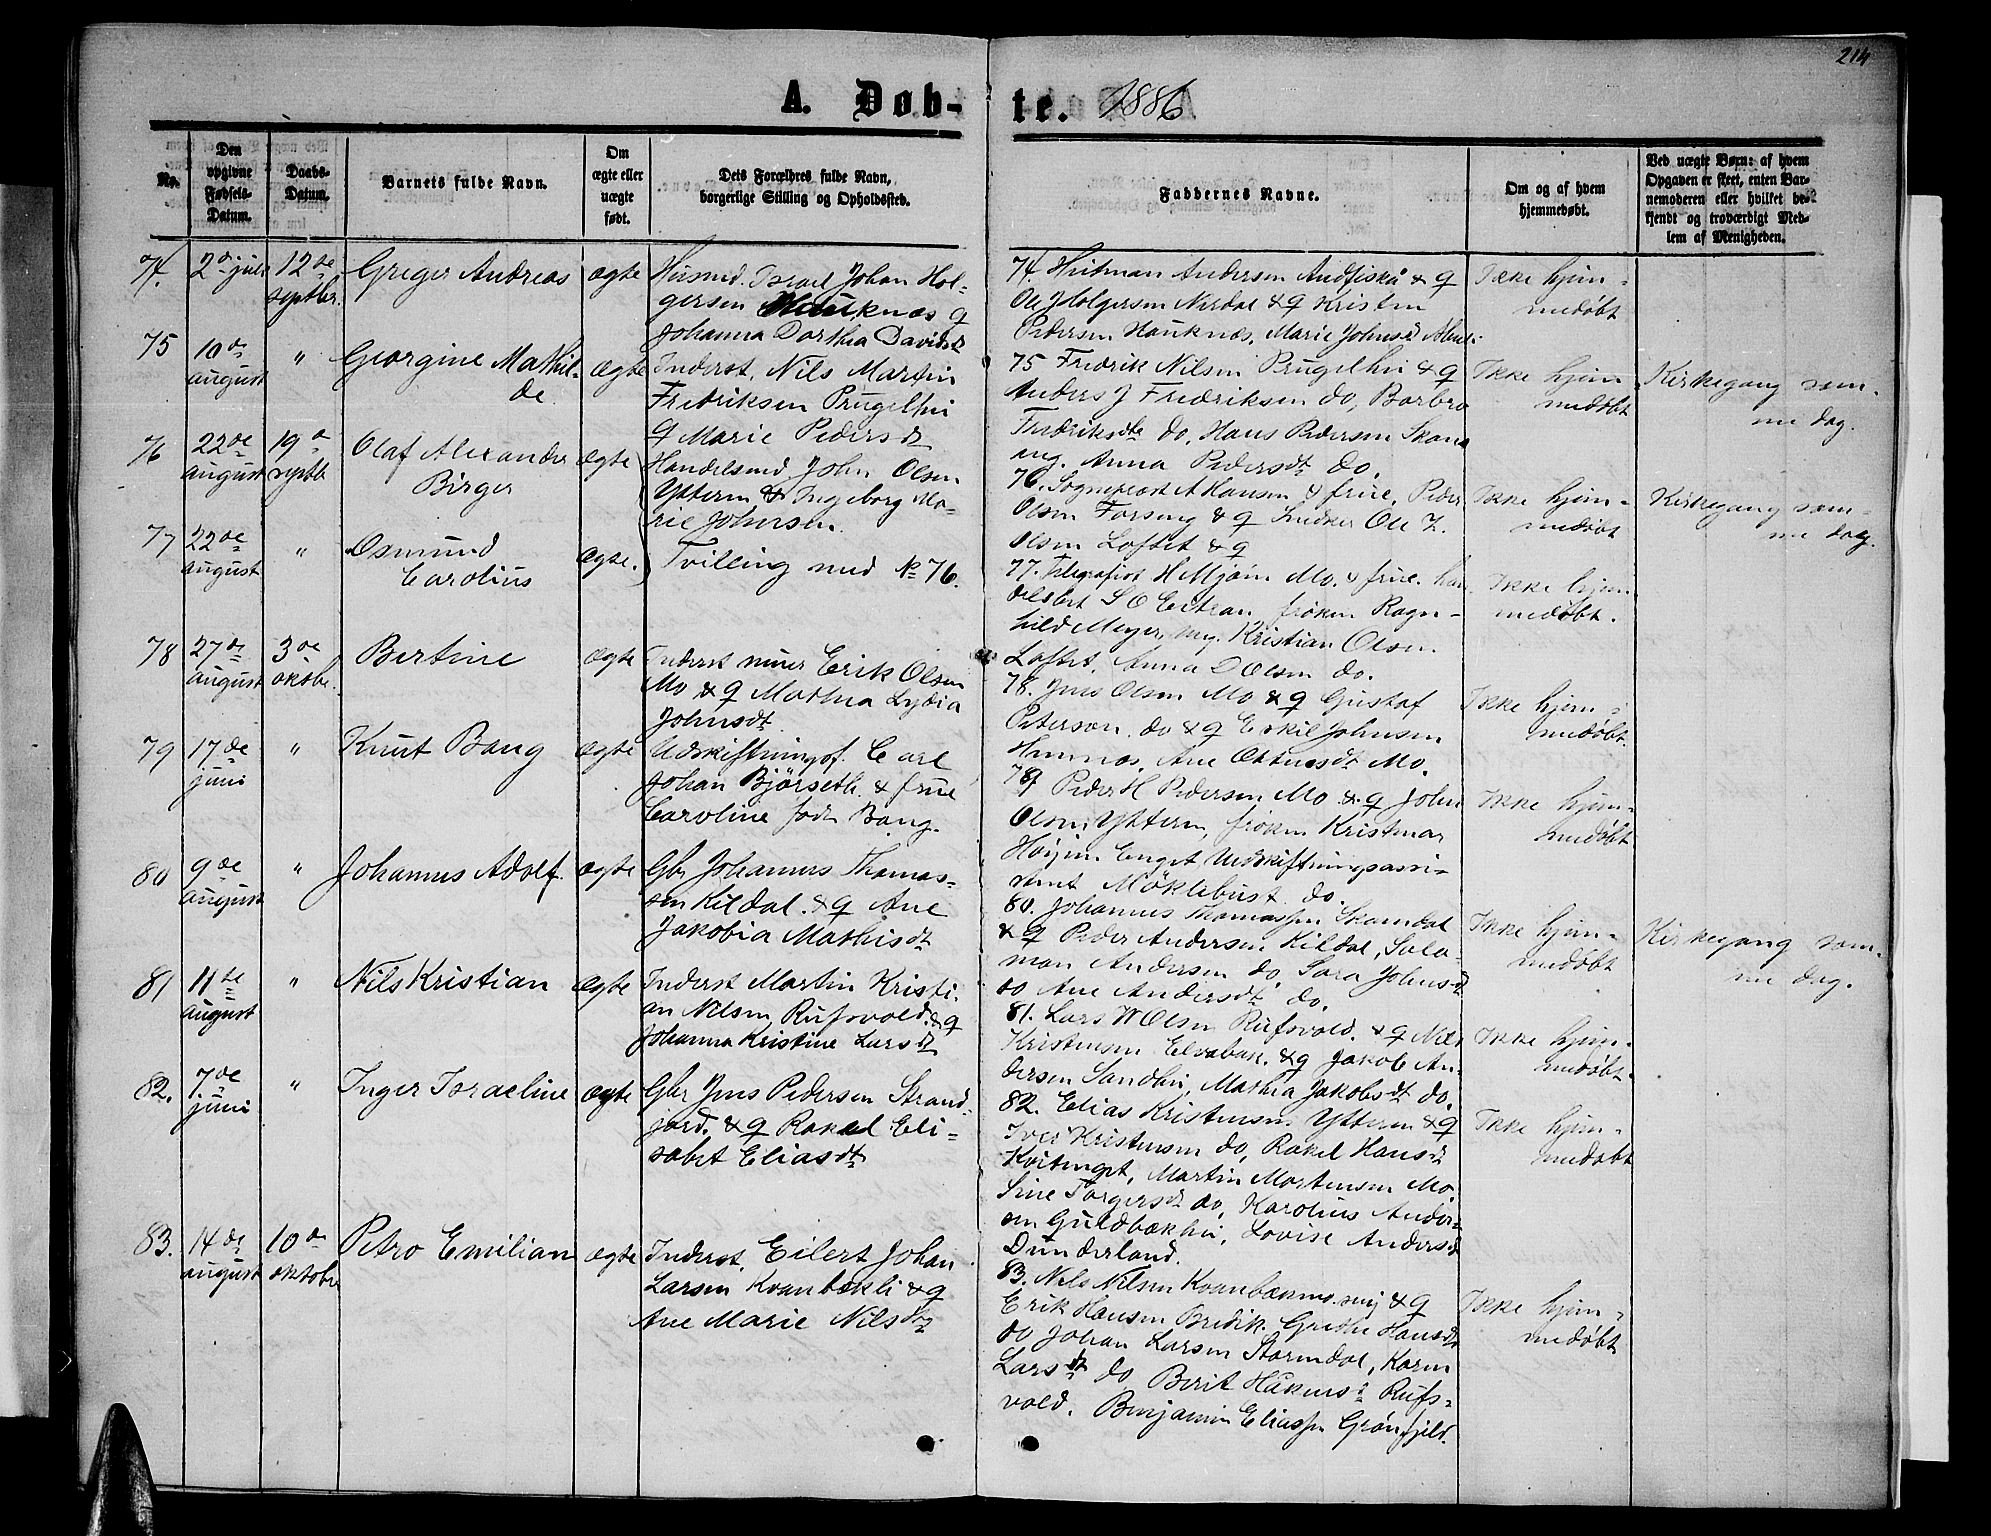 214
A. Døb-te. 1886
No.
Den opgivne Fødsels-Datum.
Daabs-Datum.
Barnets fulde Navn.
Om ægte eller uægte født.
Dets Forældres fulde Navn, borgerlige Stilling og Opholdssted.
Faddernes Navne.
Om og af hvem hjemmedøbt.
Ved uægte Børn: af hvem Opgaven er skeet, enten Barnemoderen eller hvilket bekjendt og troværdigt Medlem af Menigheden.
74. 2de juli 12te septbr. Greger Andreas ægte
Husmd. Israel Johan Hol-
gersen Hauknæs &
Johanna Dorthea Davidsdt
74. Andersen Andfiskå & q
Ole J Holgersen Nerdal & q Kristen
Pedersen Hauknæs, Marie Johnsdt
Ikke hjem-
medøbt
75 10de august " Georgine Mathil-
de ægte
Inderst. Nils Martin
Fredriksen Prugelhei
q Marie Pedersdt
75 Fredrik Nilsen Prugelhei & q
Anders J Fredriksen do, Barbro
Fredriksdtr do, Hans Pedersen Skans
ug. Anna Pedersdt do.
Ikke hjem
medøbt
Kirkegang sam-
me dag.
76 22de august 19de septb Olaf Alexander
Birger ægte
Handelsmd John Olsen
Ytteren & Ingeborg Ma-
rie Johnsen
76. Sogneprest A Hansen & frue, Peder
Olsen Forseng & q Ole Z.
Olsen Loftet & q
Ikke hjem-
medøbt
Kirkegang sam-
me dag.
77 22de august " Osmund
Carolius ægte.
Tvilling med No 76.
77. Telegrafist H Mjøen Mo. & frue. han
delsbet S O frøken Ragn-
hild Meyer, ung. Kristian Olsen
Loftet, Anna D Olsen do.
Ikke hjem
medøbt.
78 27de august 3de oktbr. Bertine ægte
Inderst Erik Olsen
Mo & q Marthea Lydia
Johnsdt
78. Jens Olsen Mo & q Gustaf
Peterson do & q Eskil Johnsen
Hemnes, Ane Ottersdt Mo.
Ikke hjem-
medøbt.
79 17de juni " Knut Bang ægte
Udskiftningsf. Carl
Johan Bjørseth & frue
Caroline født Bang.
79 Peder H Pedersen Mo & q John
Olsen Ytteren, frøken Kristmar
Høijen Enget Udskiftningsassi-
stent Møklebust do.
Ikke hjem-
medøbt
80 9de august " Johannes Adolf. ægte
Gbr Johannes Thomas-
sen Kildal. & q Ane
Jakobia Mathisdt
80. Johannes Thomassen Skamdal
& q Peder Andersen Kildal, Salo-
mon Andersen do, Sara Johnsdt
do Ane Andersdt do.
Ikke hjem-
medøbt
Kirkegang sam-
me dag.
81 11te august " Nils Kristian ægte
Inderst Martin Kristi-
an Nilsen Rufsvold. & q
Johanna Kristine Larsdt
81. Lars W Olsen Rufsvold. & q
Kristensen Elvebak. & q Jakob An-
dersen Sandhei, Mathea Jakobsdt do.
Ikke hjem-
medøbt.
82. 7de juni " Inger Israeline ægte
Gbr Jens Pedersen Strand-
jord. & q Rakel Eli-
sabet Eliasdt
82. Elias Kristensen Ytteren & q
Iver Kristensen do, Rakel Hansdt
Kvitneset, Martin Mortensen Mo.
Sine Torgersdt do, Karolius Anders-
en Guldbækhei, Lovise Andersdt
Dunderland.
Ikke hjem-
medøbt
83. 14de august 10de oktober Petro Emilian ægte
Inderst. Eilert Johan
Larsen Kvanbækli & q
Ane Marie Nilsdtr
83. Nils Nilsen Kvanbækmo & q
Erik Hansen Bredik. Grethe Hansdt
do Johan Larsen Stormdal, Karen
Larsdt do Berit Håkens Rufs-
vold. Benjamin Eliassen Grønfjeld.
Ikke hjem-
medøbt